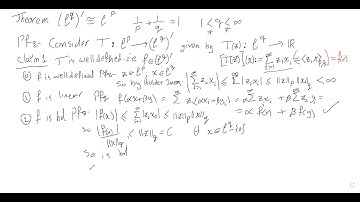 Theorem (ℓ^q)' ≅ ℓ^p    1/p + 1/q = 1    1 < q < ∞
Pf:- Consider T: ℓ^p → (ℓ^q)' given by T(z): ℓ^q → ℝ
Claim 1 T is well defined i.e. f ∈ (ℓ^q)'    [T(z)](x) := Σ_{i=1}^∞ z_i x_i = f(x)
⓪ f is well defined Pf:- z ∈ ℓ^p x ∈ ℓ^q so by Hölder Σ_{i=1}^∞ |z_i x_i| ≤ ||z||_p ||x||_q < ∞
① f is linear Pf:- f(αx+βy) = Σ z_i(αx_i+βy_i) = α Σ z_i x_i + β Σ z_i y_i =
② f is bd Pf:- |f(x)| ≤ Σ |z_i x_i| ≤ ||z||_p ||x||_q    = α f(x) + β f(y) ✓
so |f(x)|/||x||_q ≤ ||z||_p = C ∀ x ∈ ℓ^q \ {0}
So is bd